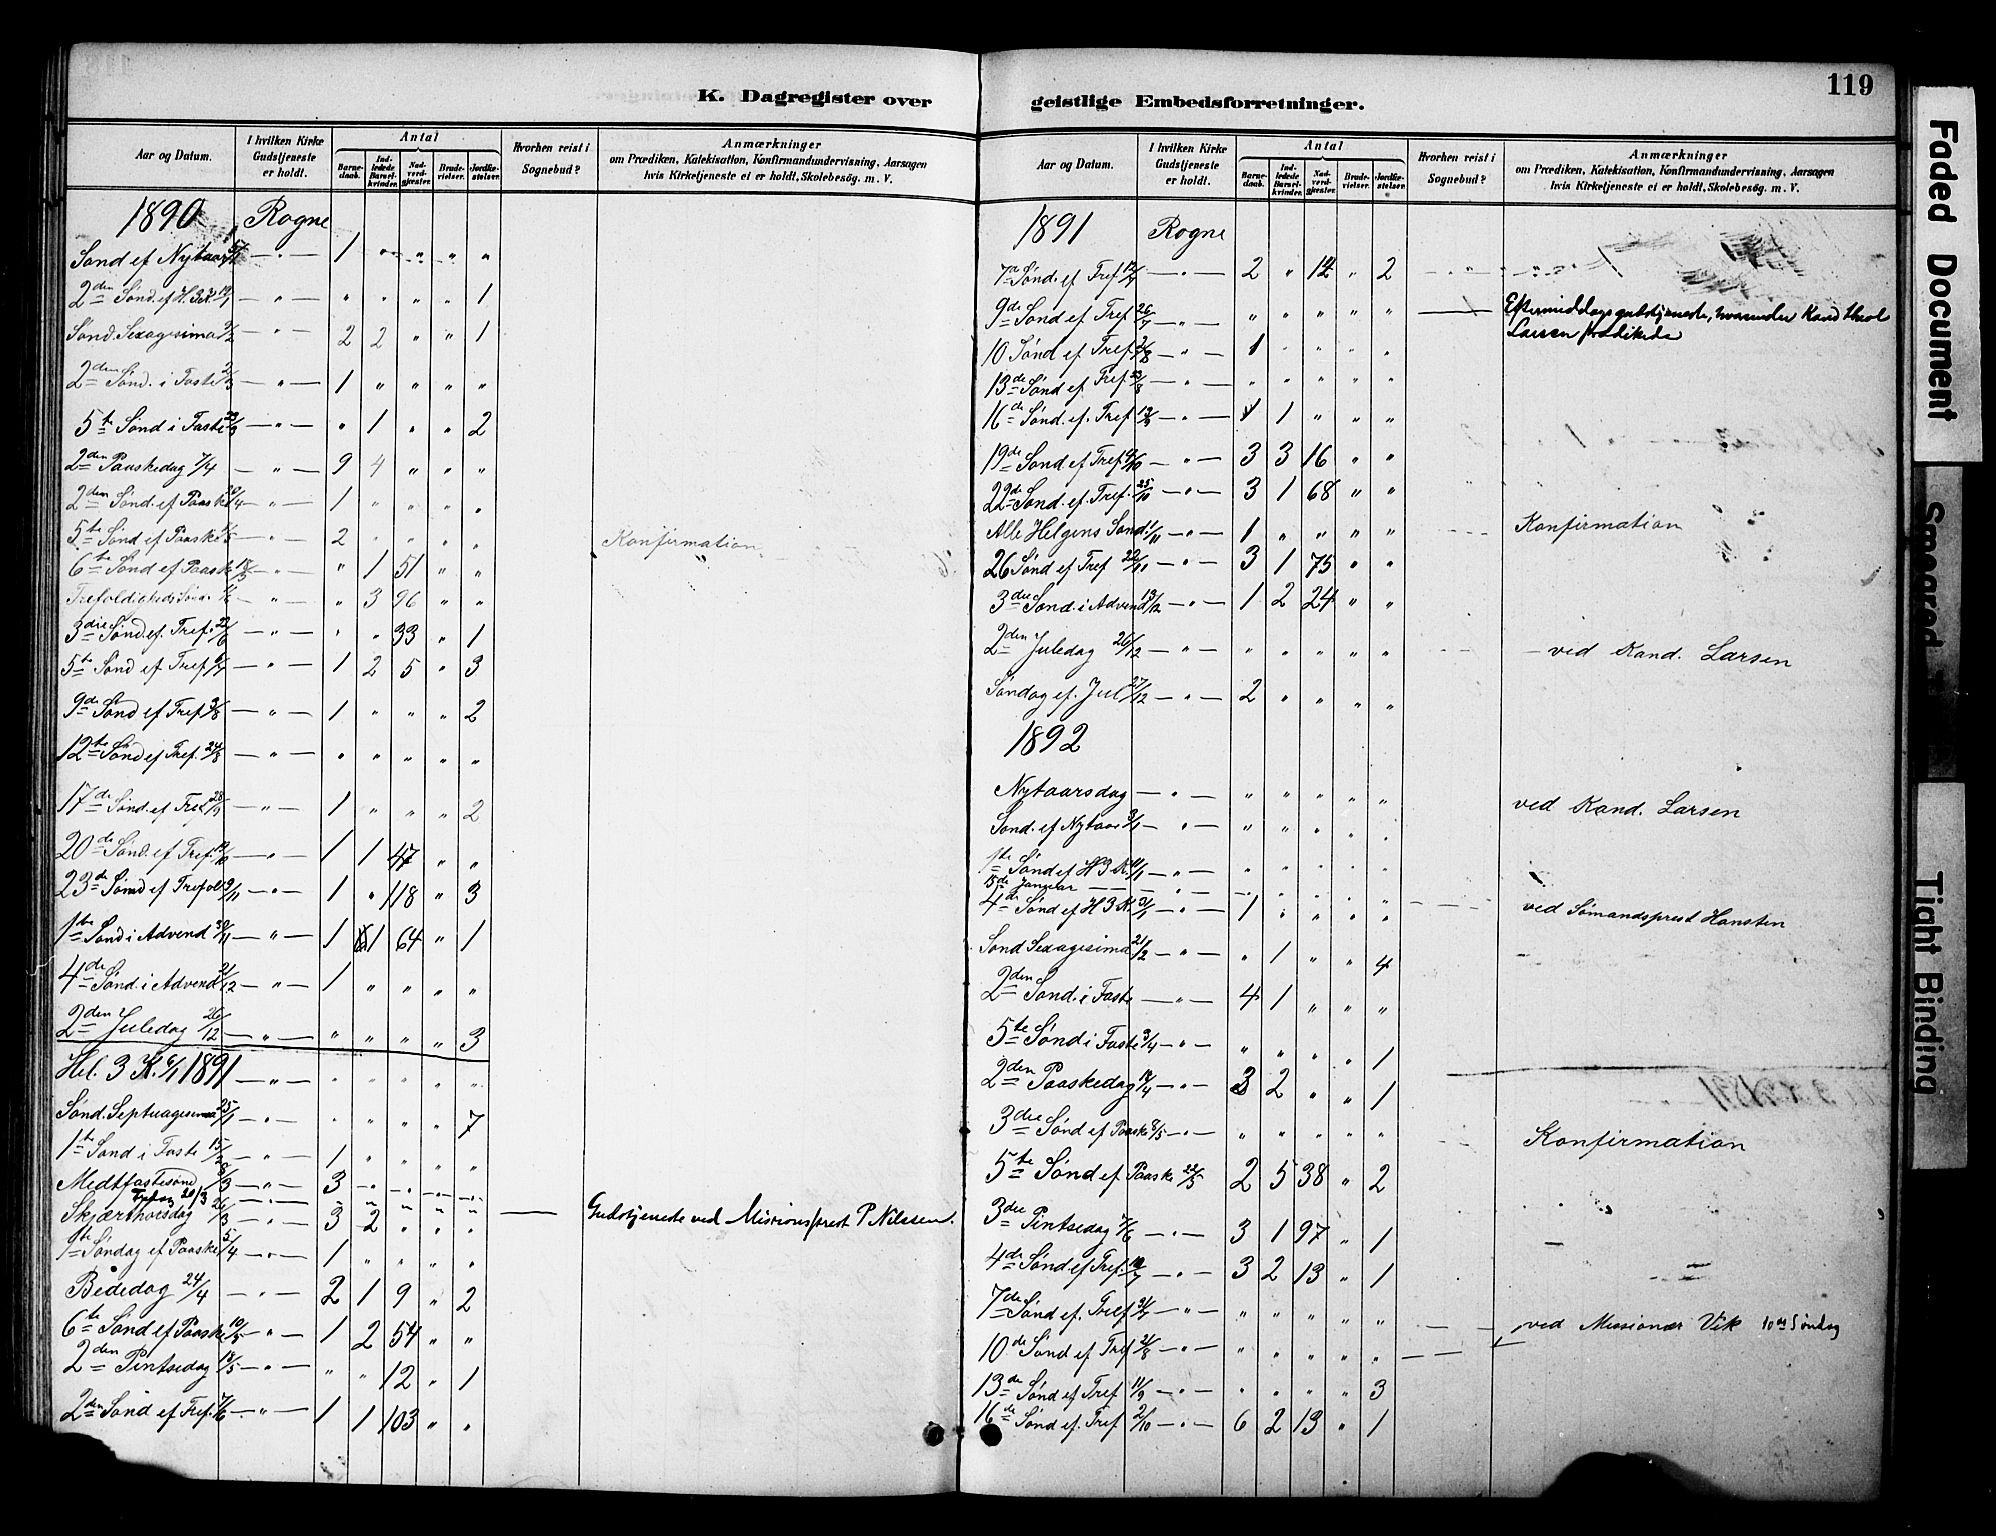 K. Dagregister over
Aar og Datum. I hvilken Kirke Gudstjeneste er holdt. Antal Barnedaab. Indledede Barselkvinder. Nadverdgjester. Brudevielser. Jordfæstelser. Hvorhen reist i Sognebud? Anmærkninger om Prædiken, Katekisation, Konfirmandundervisning, Aarsagen hvis Kirketjeneste ei er holdt, Skolebesøg. m. V.
1890 Rogne
Sønd ef Nytaar 5/1 — " — 1 " " " "
2den Sønd. ef H. 3 K 19/1 — " — " " " " 1
Sønd. Sexagesima 9/2 — " — 2 2 " " 1
2den Sønd. i Faste 2/3 — " — 1 " " " "
5te Sønd i Faste 23/3 — " — " 1 " " 2
2den Paaskedag 7/4 — " — 9 4 " " "
2den Sønd. ef Paaske 20/4 — " — 1 " " " "
5te Sønd ef Paaske — " — 2 " " " " Konfirmation
6te Sønd ef Paaske 18/5 — " — " 1 51 " "
Trefoldigheds Sønd. 1/6 — " — " 3 96 " "
3die Sønd. ef. Tref. 22/6 — " — " " 33 " 1
5te Sønd ef Tref 6/7 — " — 1 2 5 " 3
9de Sønd ef Tref 3/8 — " — 1 " " " 2
12te Sønd ef Tref. 24/8 — " — " " " " "
17de Sønd. ef Tref 28/9 — " — 1 " " " 2
20de Sønd. ef Tref. 19/10 — " — 1 1 47 " "
23de Sønd ef Trefol 9/11 — " — 1 " 118 " 3
1ste Sønd i Advend 30/11 — " — 1 1 64 " 1
4de Sønd i Advend 21/12 — " — 1 " " " "
2den Juledag 26/12 — " — " " " " 3
Hel. 3 K. 6/1 1891 — " — " " " " "
Sønd. Septuagesima 25/1 — " — " " " " 7
1te Sønd i Faste 15/2 — " — 1 " " " "
Midtfastesønd 8/3 — " — 3 " " " "
20/3 — " — " " " " "
Skjærthorsdag 26/3 — " — 3 2 " " " — Gudstjeneste ved Missionsprest P Nilssen.
1ste Søndag ef Paaske 5/4 — " — 1 " " " "
Bededag 24/4 — " — 2 1 9 " 2
6te Sønd ef Paaske 10/5 — " — 1 2 54 " "
2den Pintsedag 18/5 — " — " " 12 " 1
2den Sønd ef Tref. 7/6 — " — 1 1 103 " "
119
geistlige Embedsforretninger.
Aar og Datum. I hvilken Kirke Gudstjeneste er holdt. Antal Barnedaab. Indledede Barselkvinder. Nadverdgjester. Brudevielser. Jordfæstelser. Hvorhen reist i Sognebud? Anmærkninger om Prædiken, Katekisation, Konfirmandundervisning, Aarsagen hvis Kirketjeneste ei er holdt, Skolebesøg. m. V.
1891 Rogne
7de Sønd. ef Tref 12/7 — " — 2 " 14 " 2
9de Sønd ef Tref 26/7 — " — " " " " " — Eftermiddagsgudstjeneste, hvorunder Kand theol Larsen prædikede
10 Sønd ef Tref. 2/8 — " — 1 " " " "
13de Sønd ef. Tref 23/8 — " — " " " " "
16de Sønd ef. Tref 13/9 — " — 1 1 " " "
19de Sønd ef Tref 4/10 — " — 3 3 16 " "
22de Sønd. ef. Tref. 25/10 — " — 3 1 68 " "
Alle Helgens Sønd. 1/11 — " — 1 " " " " Konfirmation
26 Sønd ef Tref 22/11 — " — 3 1 75 " "
3die Sønd. i Advend 13/12 — " — 1 2 24 " "
2den Juledag 26/12 — " — " " " " " — ved Kand. Larsen
Søndag ef. Jul 27/12 — " — 2 " " " "
1892
Nytaarsdag — " — " " " " " ved Kand. Larsen
Sønd. ef Nytaar 3/1 — " — " " " " "
1ste Sønd ef H 3 K. — " — " " " " "
15de Januar — — — " — " " " " "
4de Sønd ef H 3 K. 31/1 — " — 1 " " " " ved Sømandsprest Hansten
Sønd Sexagesima 21/2 — " — " 1 " " 4
2den Sønd. i Faste — " — 4 1 " " "
5te Sønd i Faste 3/4 — " — " " " " 1
2den Paaskedag 18/4 — " — 3 2 " " 1
3die Sønd ef Paaske 8/5 — " — " " " " " Konfirmation
5te Sønd ef Paaske 22/5 2 5 38 " 2
3die Pintsedag 7/6 — " — 3 1 97 " 1
4de Sønd ef Tref. 10/7 — " — 3 2 13 " 1
7de Sønd ef. Tref 31/7 — " — " " " " " ved Missionær Vik 10de Søndag
10de Sønd ef Tref 21/8 — " — " " " " "
13de Sønd ef Tref 11/9 — " — " " " " 3
16de Sønd ef. Tref 2/10 — " — 6 2 13 " 1
Faded Document
Smeared
Tight Binding